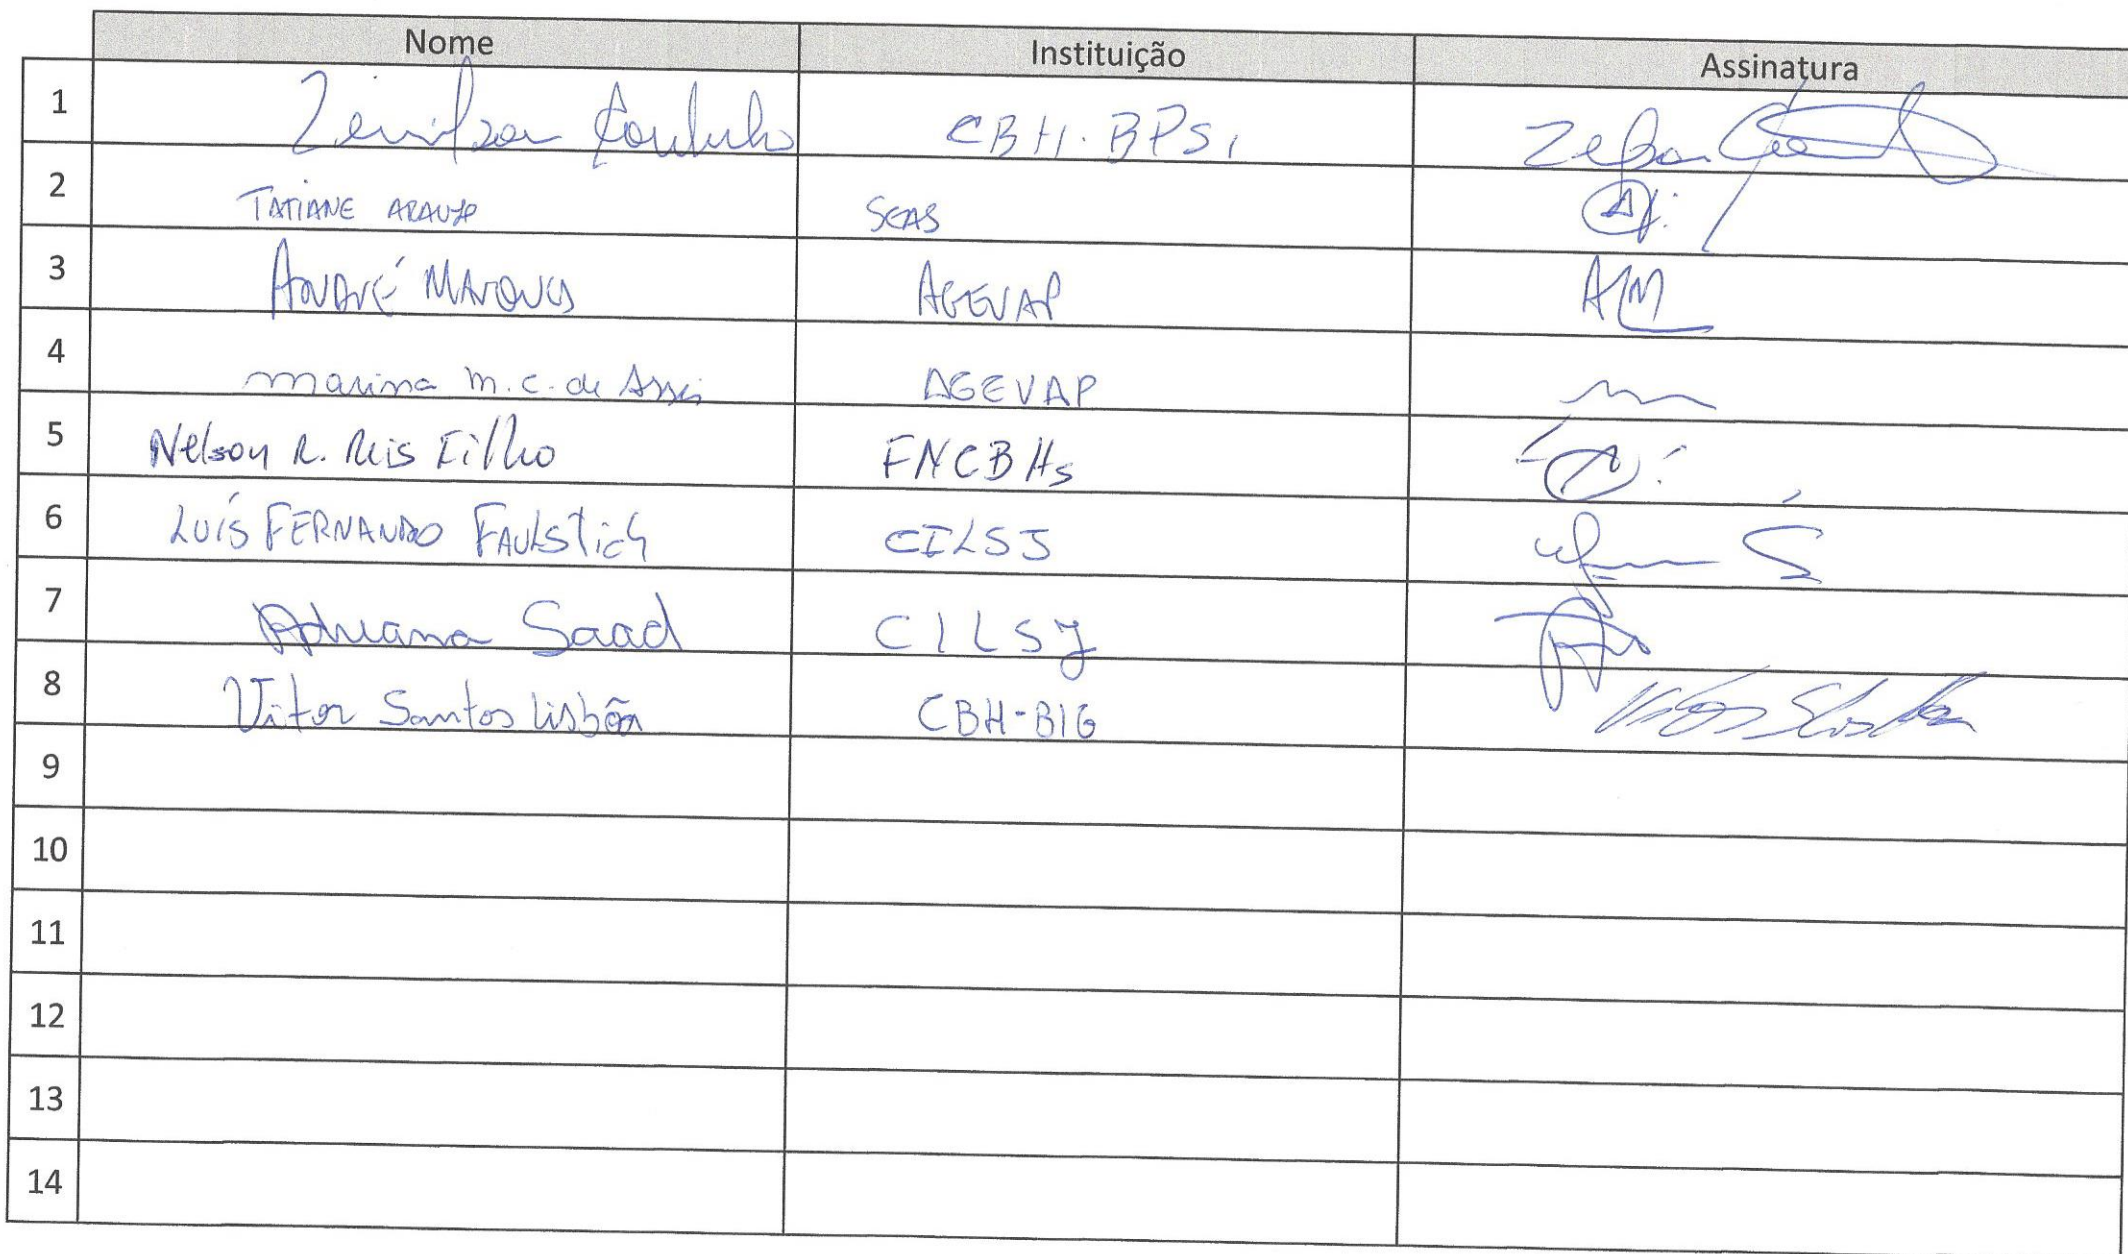 Nome Instituição Assinatura
1 Zenilson Coutinho CBH.BPSI
2 TATIANE ARAUJO SEAS
3 ANDRÉ MARQUES AGEVAP AM
4 Marina M.C. de Assis AGEVAP
5 Nelson R. Reis Filho FNCBHs
6 LUÍS FERNANDO FAULSTICH CILSJ
7 Adriana Saad CILSJ
8 Vitor Santos Lisbôa CBH-BIG
9
10
11
12
13
14